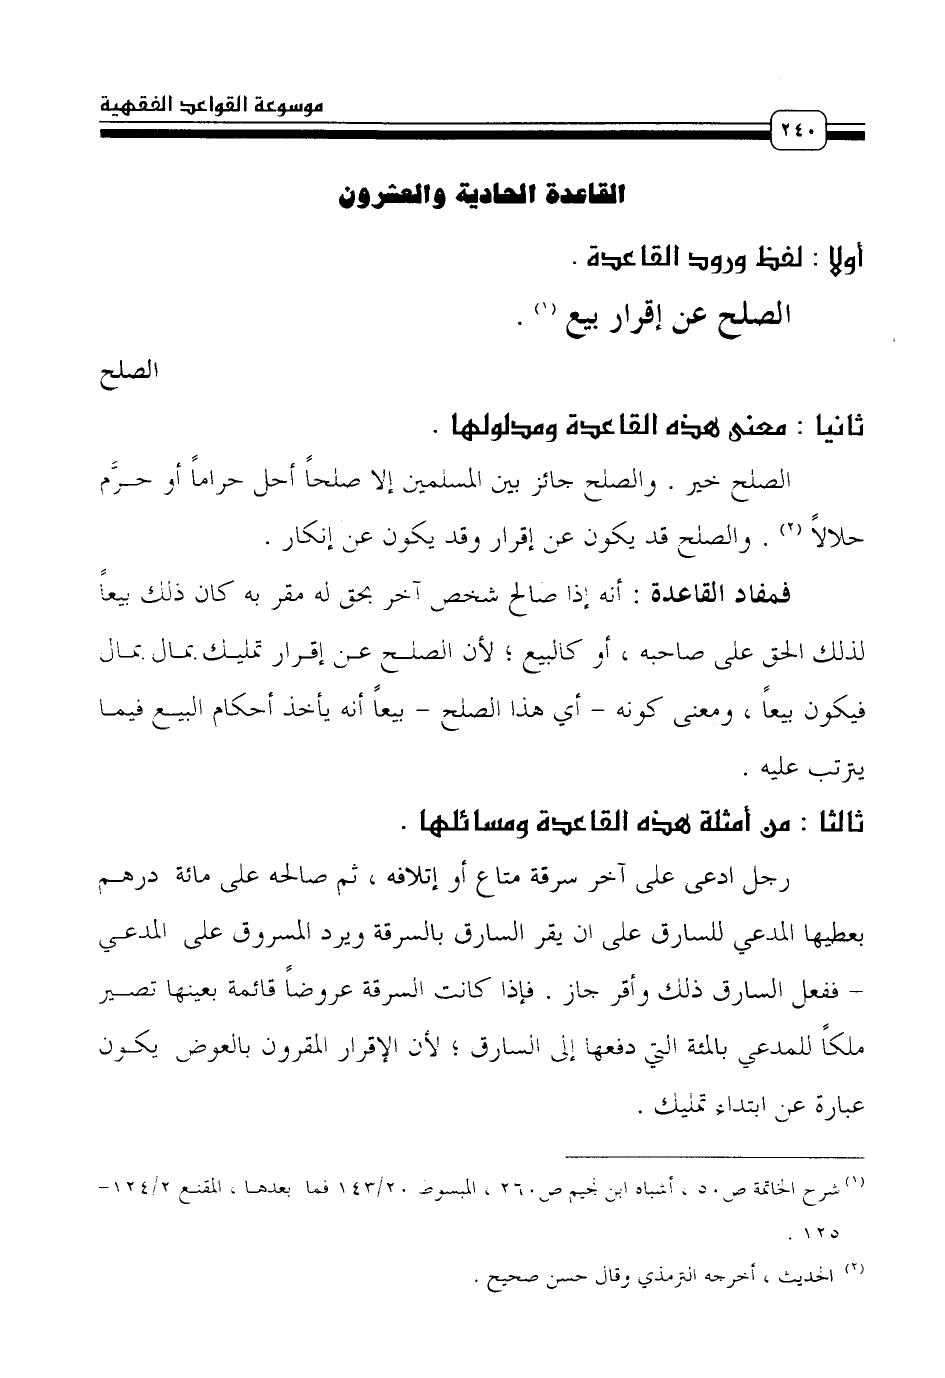 موسوعة القواعد الفقهية
٢٤٠
القاعدة الحادية والعشرون
أولا : لفظ ورود القاعدة .
الصلح عن إقرار بيع (١) .
الصلح
ثانيا : معنى هذه القاعدة ومدلولها .
الصلح خير . والصلح جائز بين المسلمين إلا صلحاً أحل حراماً أو حرَّم
حلالاً (٢) . والصلح قد يكون عن إقرار وقد يكون عن إنكار .
فمفاد القاعدة : أنه إذا صالح شخص آخر بحق له مقر به كان ذلك بيعاً
لذلك الحق على صاحبه ، أو كالبيع ؛ لأن الصلح عن إقرار تمليك بمال بمال
فيكون بيعاً ، ومعنى كونه – أي هذا الصلح – بيعاً أنه يأخذ أحكام البيع فيما
يترتب عليه .
ثالثا : من أمثلة هذه القاعدة ومسائلها .
رجل ادعى على آخر سرقة متاع أو إتلافه ، ثم صالحه على مائة درهم
يعطيها المدعي للسارق على ان يقر السارق بالسرقة ويرد المسروق على المدعي
– ففعل السارق ذلك وأقر جاز . فإذا كانت السرقة عروضاً قائمة بعينها تصير
ملكاً للمدعي بالمئة التي دفعها إلى السارق ؛ لأن الإقرار المقرون بالعوض يكون
عبارة عن ابتداء تمليك .
(١) شرح الخاتمة ص٥٠ ، أشباه ابن نجيم ص٢٦٠ ، المبسوط ١٤٣/٢٠ فما بعدها ، المقنع ١٢٤/٢–
١٢٥ .
(٢) الحديث ، أخرجه الترمذي وقال حسن صحيح .